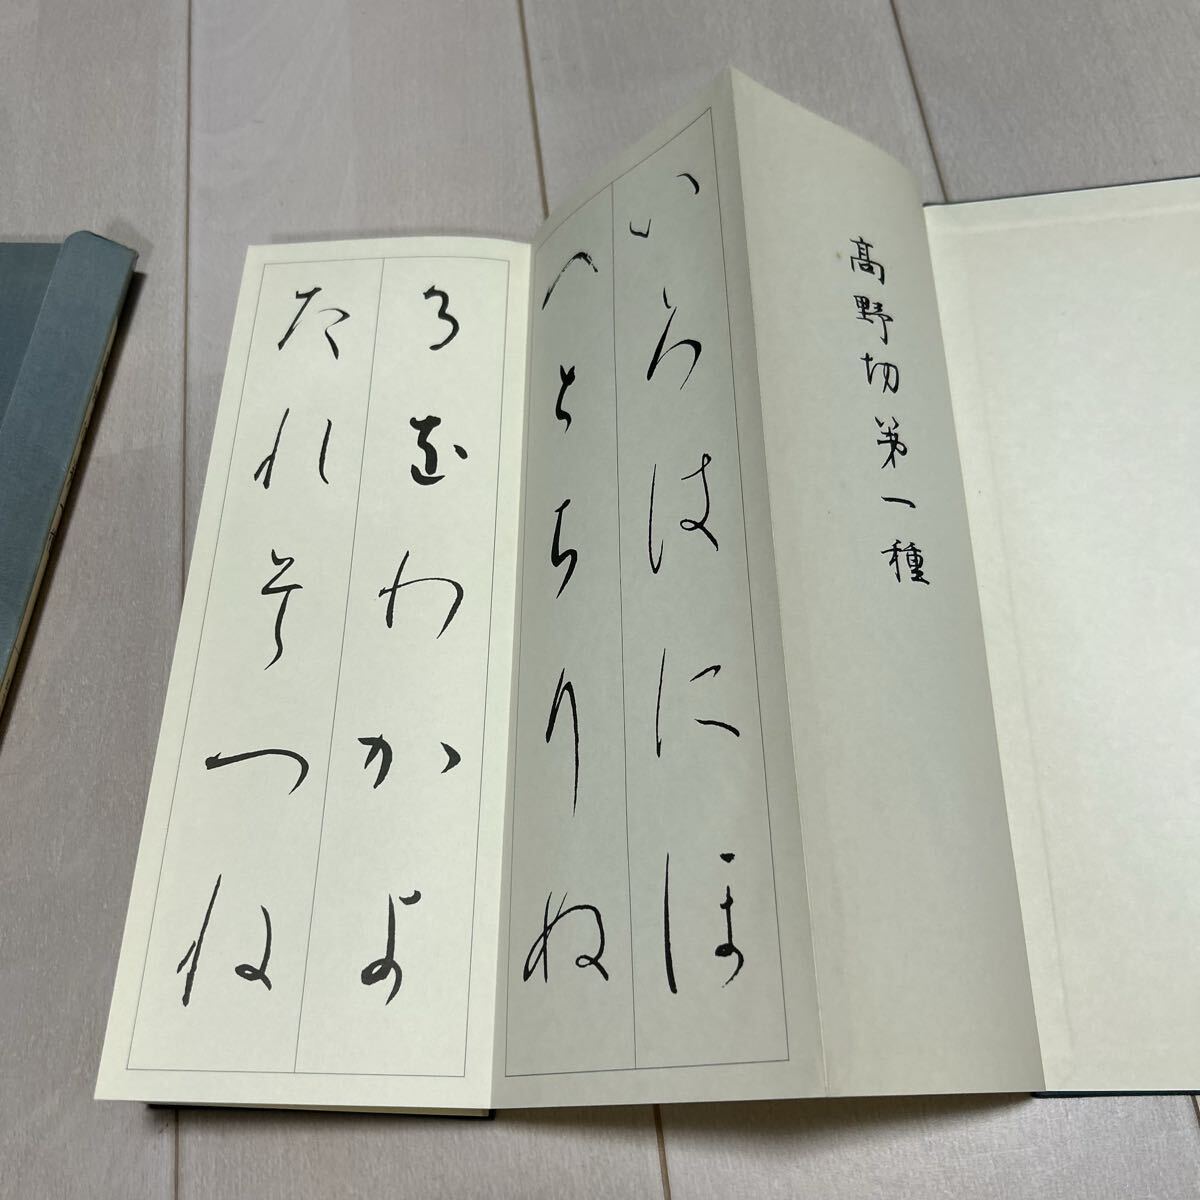 高野切第一種
いろはにほ
へとちりぬ
るをわかよ
たれそつね